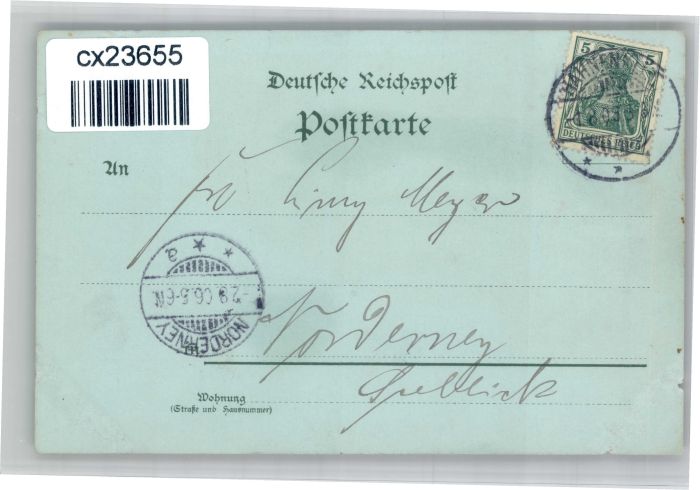 cx23655
5 5
DEUTSCHES REICH
Deutsche Reichspost
Postkarte
An
Meyer
a
-2.9.06.5-6N.
NORDERNEY
Norderney
Wohnung
(Straße und Hausnummer)